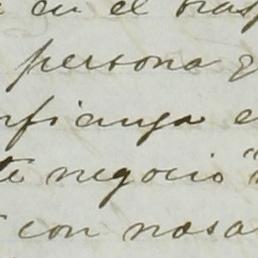 en el tras
persona q
nfianza e
te negocio"
con nosa